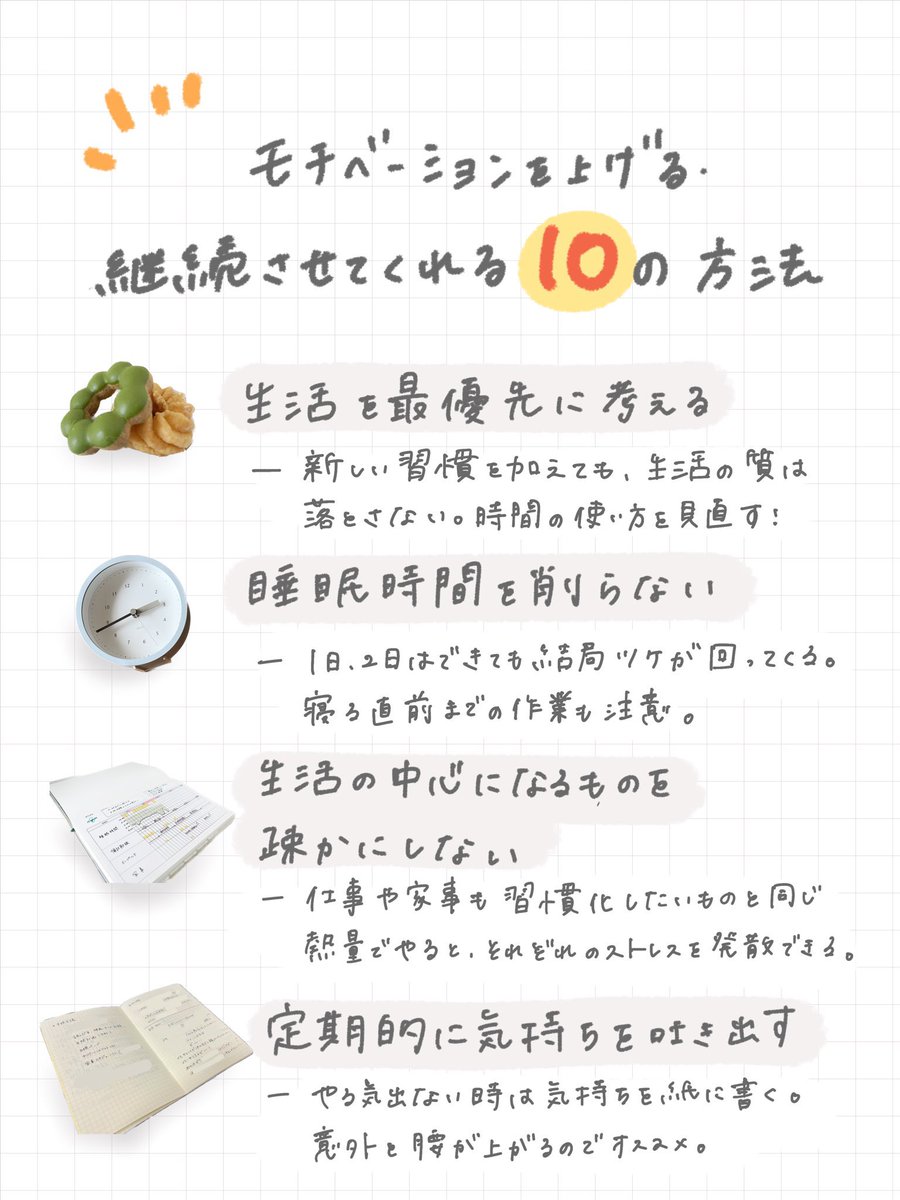 モチベーションを上げる.
継続させてくれる10の方法
生活を最優先に考える
― 新しい習慣を加えても、生活の質は
落とさない。時間の使い方を見直す!
睡眠時間を削らない
― 1日、2日はできても結局ツケが回ってくる。
寝る直前までの作業も注意。
生活の中心になるものを
疎かにしない
― 仕事や家事も習慣化したいものと同じ
熱量でやると、それぞれのストレスを発散できる。
定期的に気持ちを吐き出す
― やる気出ない時は気持ちを紙に書く。
意外と腰が上がるのでオススメ。